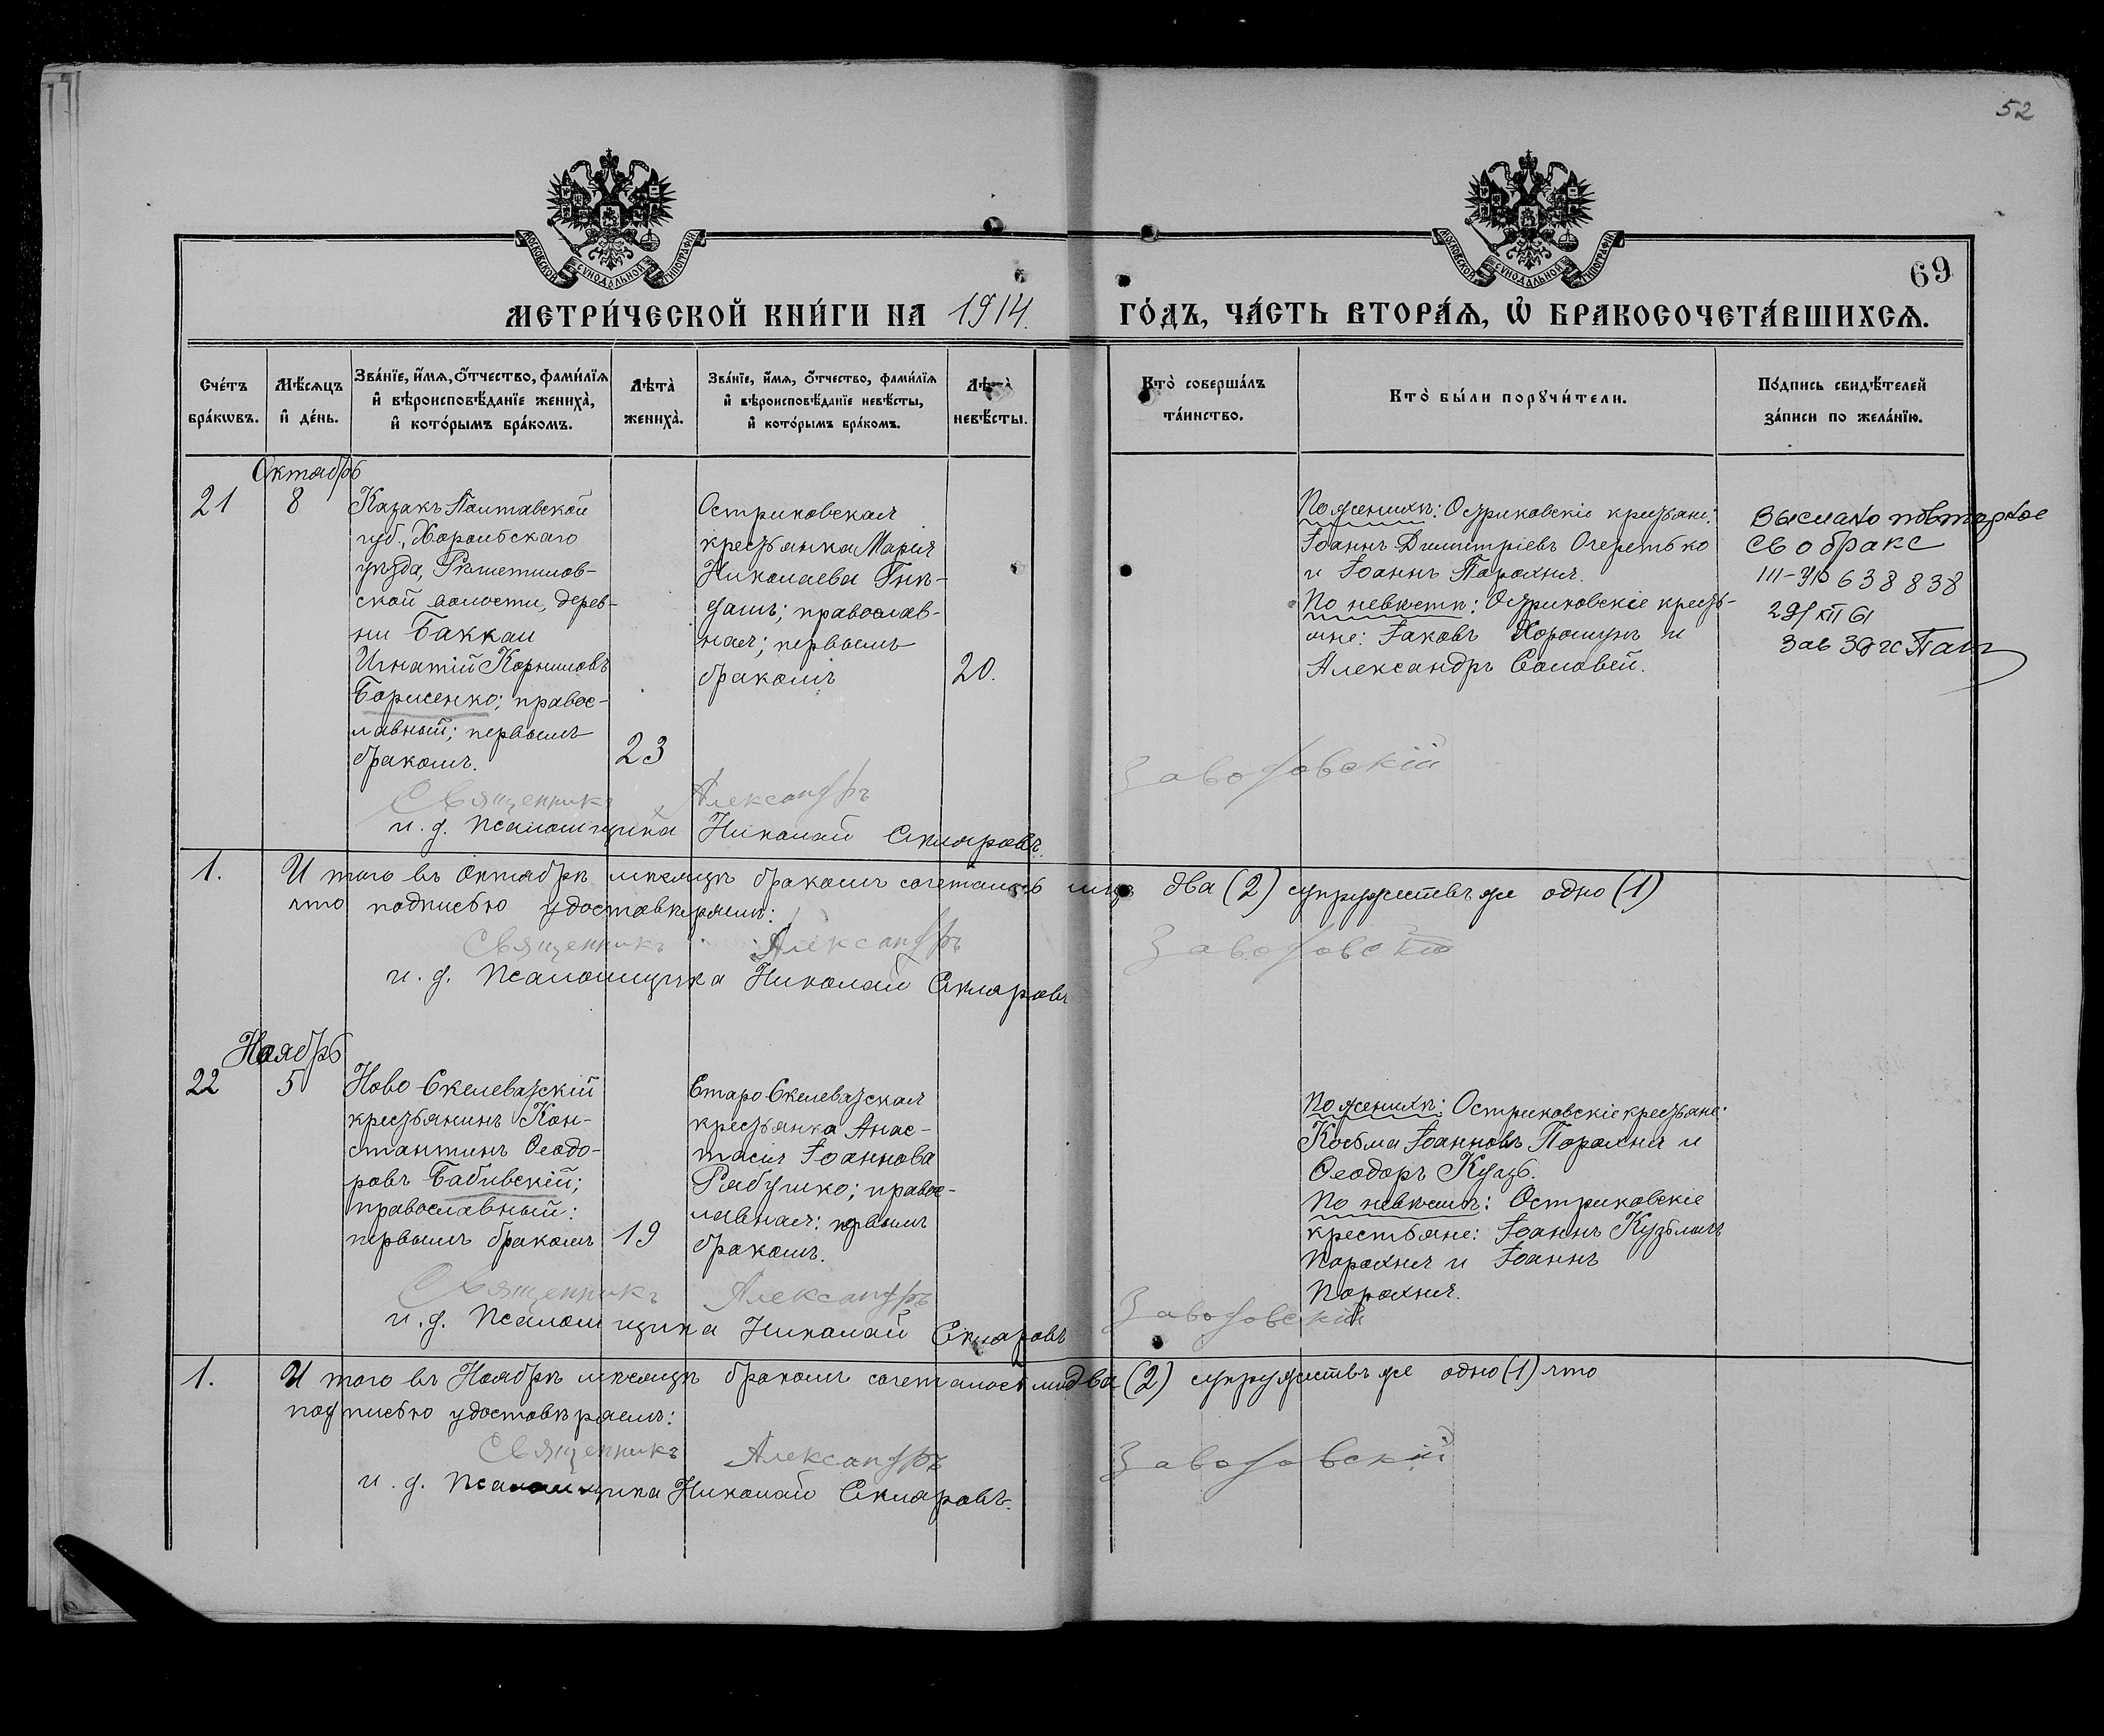 52
МОСКОВСКОЙ СѴНОДАЛЬНОЙ ТИПОГРАФІИ
МОСКОВСКОЙ СѴНОДАЛЬНОЙ ТИПОГРАФІИ
69
МЕТРИ́ЧЕСКОЙ КНИ́ГИ НА 1914. ГО́ДЪ, ЧА́СТЬ ВТОРА́Ѧ, Ѡ҆ БРАКОСОЧЕТА́ВШИХСѦ.
Сче́тъ
бра́кѡвъ.
Мѣ́сяцъ
и҆ де́нь.
Зва́нїе, и҆́мѧ, ѻ҆́тчество, фами́лїѧ
и҆ вѣроисповѣ́данїе жениха̀,
и҆ кото́рымъ бра́комъ.
Лѣта̀
жениха̀.
Зва́нїе, и҆́мѧ, ѻ҆́тчество, фами́лїѧ
и҆ вѣроисповѣ́данїе невѣ́сты,
и҆ кото́рымъ бра́комъ.
Лѣта̀
невѣ́сты.
Кто̀ соверша́лъ
та́инство.
Кто̀ бы́ли порꙋчи́тели.
По́дпись свидѣ́телей
за́писи по жела́нїю.
Октябрь
21
8
Казакъ Полтавской
губ., Хорольскаго
уѣзда, Рѣшетилов-
ской волости, дерев-
ни Баккаи
Игнатій Корниловъ
Борисенко; правос-
лавный; первымъ
бракомъ.
23
Остриковская
крестьянка Марія
Николаева
православ-
ная; первымъ
бракомъ
20.
По женихѣ: Остриковскіе крестьяне:
Іоаннъ Димитріевъ Очеретько
и Іоаннъ Порохня.
По невѣстѣ: Остриковскіе кресть-
яне: Іаковъ Хорошунъ и
Александръ Соловей.
Выслано повторное
св о браке
III-УР 638838
29/XII 61
Зав ЗАГС
Священникъ Александръ Заводовскій
и. д. псаломщика Николай Скляровъ.
1. И того въ Октябрѣ мѣсяцѣ бракомъ сочеталось лицъ два (2) супружествъ же одно (1)
что подписью удостовѣряемъ:
Священникъ Александръ Заводовскій
и. д. Псаломщика Николай Скляровъ
Ноябрь
22
5
Ново Скелеватскій
крестьянинъ Кон-
стантинъ Ѳеодо-
ровъ Бабивскій;
православный:
первымъ бракомъ
19
Старо Скелеватская
крестьянка Анас-
тасія Іоаннова
Рябушко; правос-
лавная: первымъ
бракомъ.
По женихѣ: Остриковскіе крестьяне:
Косьма Іоанновъ Порохня и
Ѳеодоръ Куць.
По невѣстѣ: Остриковскіе
крестьяне: Іоаннъ Кузьминъ
Порохня и Іоаннъ
Порохня.
Священникъ Александръ Заводовскій
и. д. Псаломщика Николай Скляровъ
1. И того въ Ноябрѣ мѣсяцѣ бракомъ сочеталось лицъ два (2) супружествъ же одно (1) что
подписью удостовѣряемъ:
Священникъ Александръ Заводовскій
и. д. Псаломщика Николай Скляровъ.